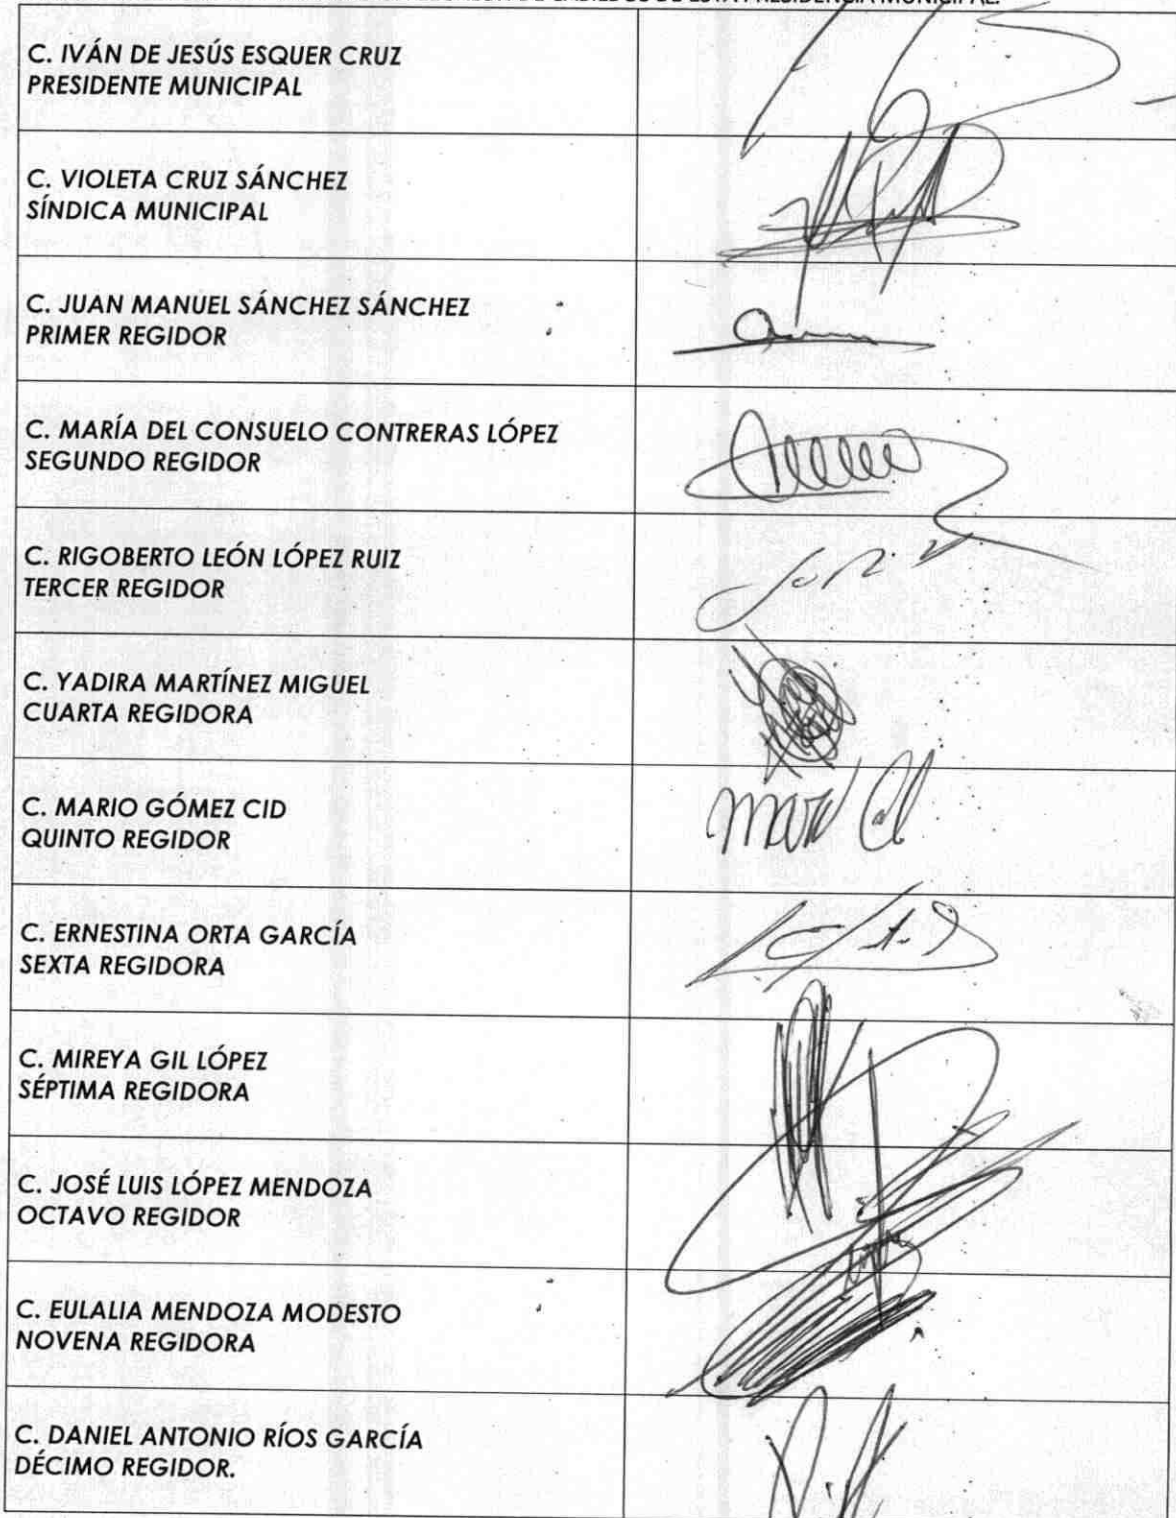 DE CABILDOS DE ESTA PRESIDENCIA MUNICIPAL.
C. IVÁN DE JESÚS ESQUER CRUZ
PRESIDENTE MUNICIPAL
C. VIOLETA CRUZ SÁNCHEZ
SÍNDICA MUNICIPAL
C. JUAN MANUEL SÁNCHEZ SÁNCHEZ
PRIMER REGIDOR
C. MARÍA DEL CONSUELO CONTRERAS LÓPEZ
SEGUNDO REGIDOR
C. RIGOBERTO LEÓN LÓPEZ RUIZ
TERCER REGIDOR
C. YADIRA MARTÍNEZ MIGUEL
CUARTA REGIDORA
C. MARIO GÓMEZ CID
QUINTO REGIDOR
C. ERNESTINA ORTA GARCÍA
SEXTA REGIDORA
C. MIREYA GIL LÓPEZ
SÉPTIMA REGIDORA
C. JOSÉ LUIS LÓPEZ MENDOZA
OCTAVO REGIDOR
C. EULALIA MENDOZA MODESTO
NOVENA REGIDORA
C. DANIEL ANTONIO RÍOS GARCÍA
DÉCIMO REGIDOR.